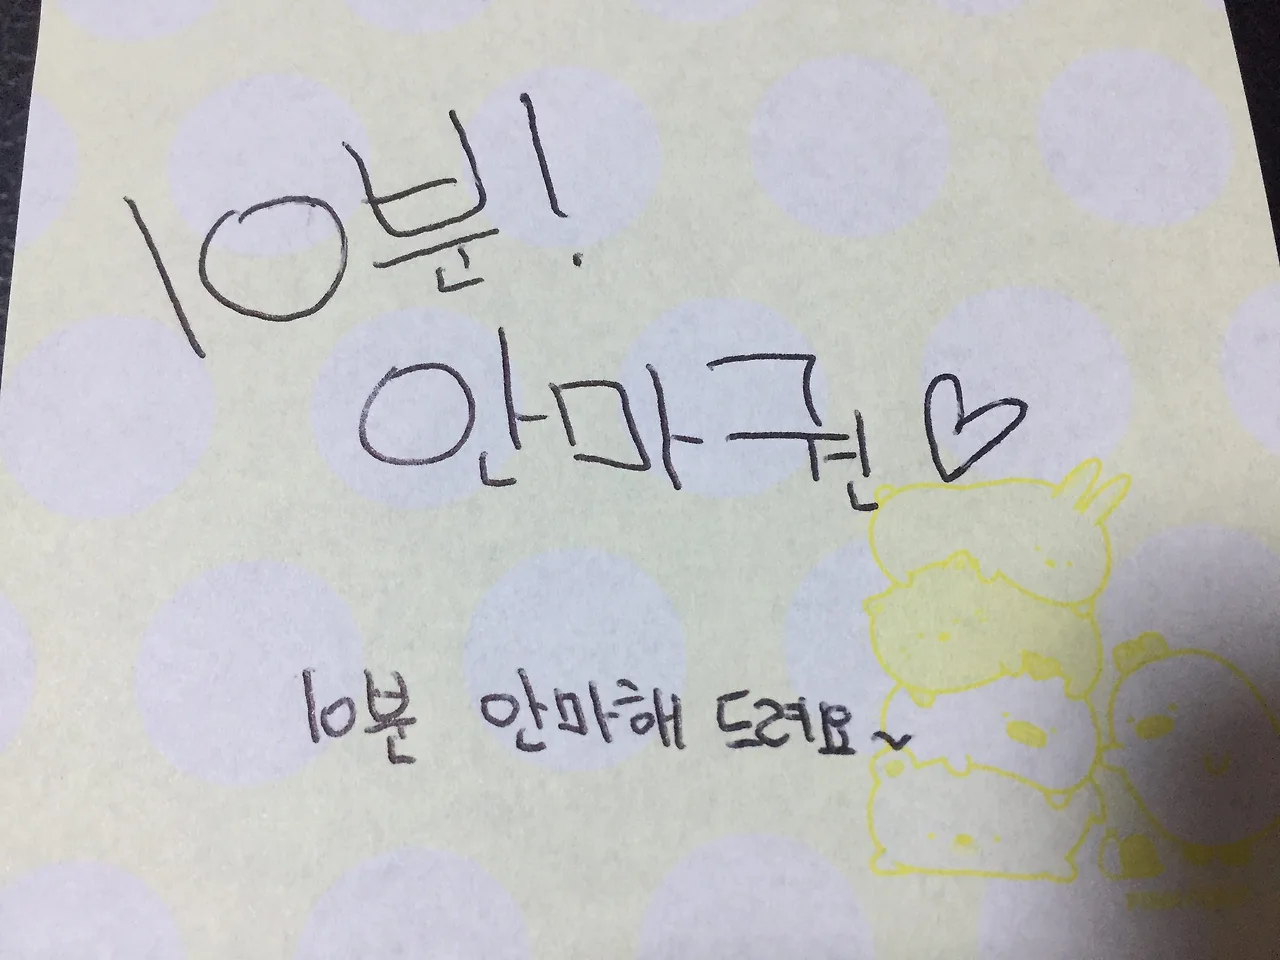 10분!
안마권♡
10분 안마해 드려요~